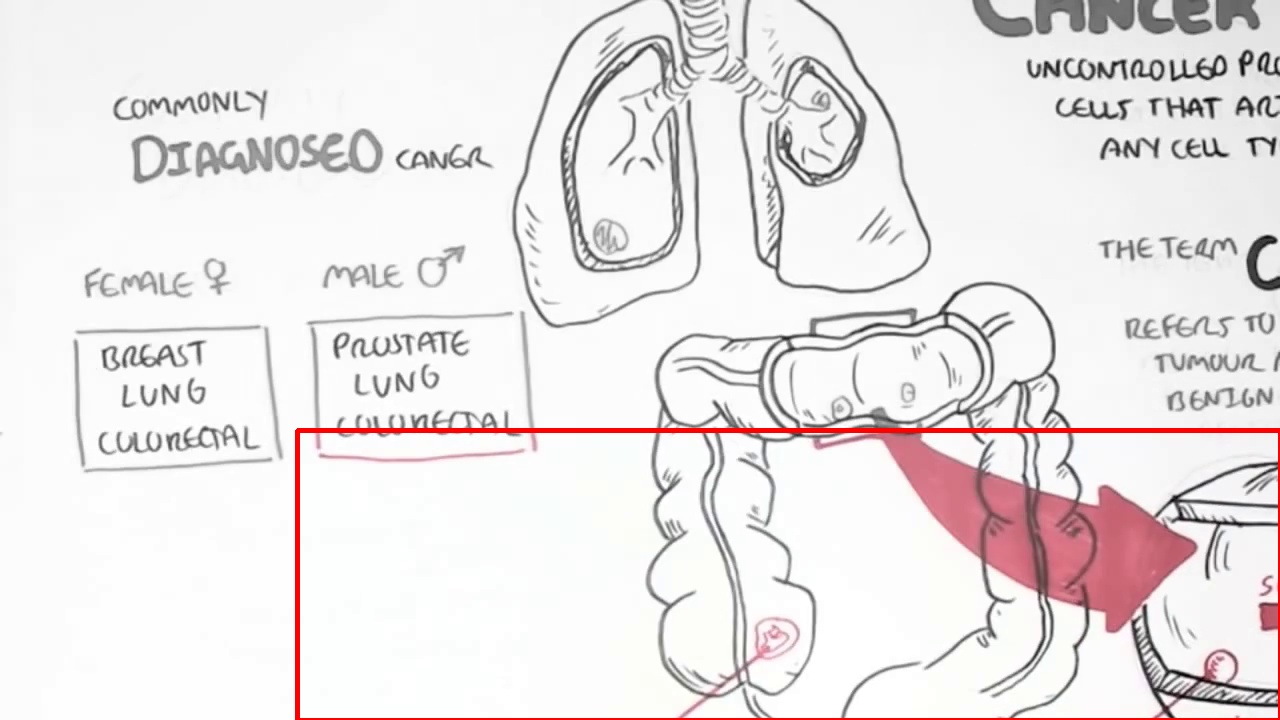 COMMONLY
DIAGNOSED CANCER
FEMALE ♀
MALE ♂
BREAST
LUNG
COLORECTAL
PROSTATE
LUNG
COLORECTAL
CANCER
UNCONTROLLED PRO
CELLS THAT AR
ANY CELL TY
THE TERM C
REFERS TO
TUMOUR
BENIGN
S